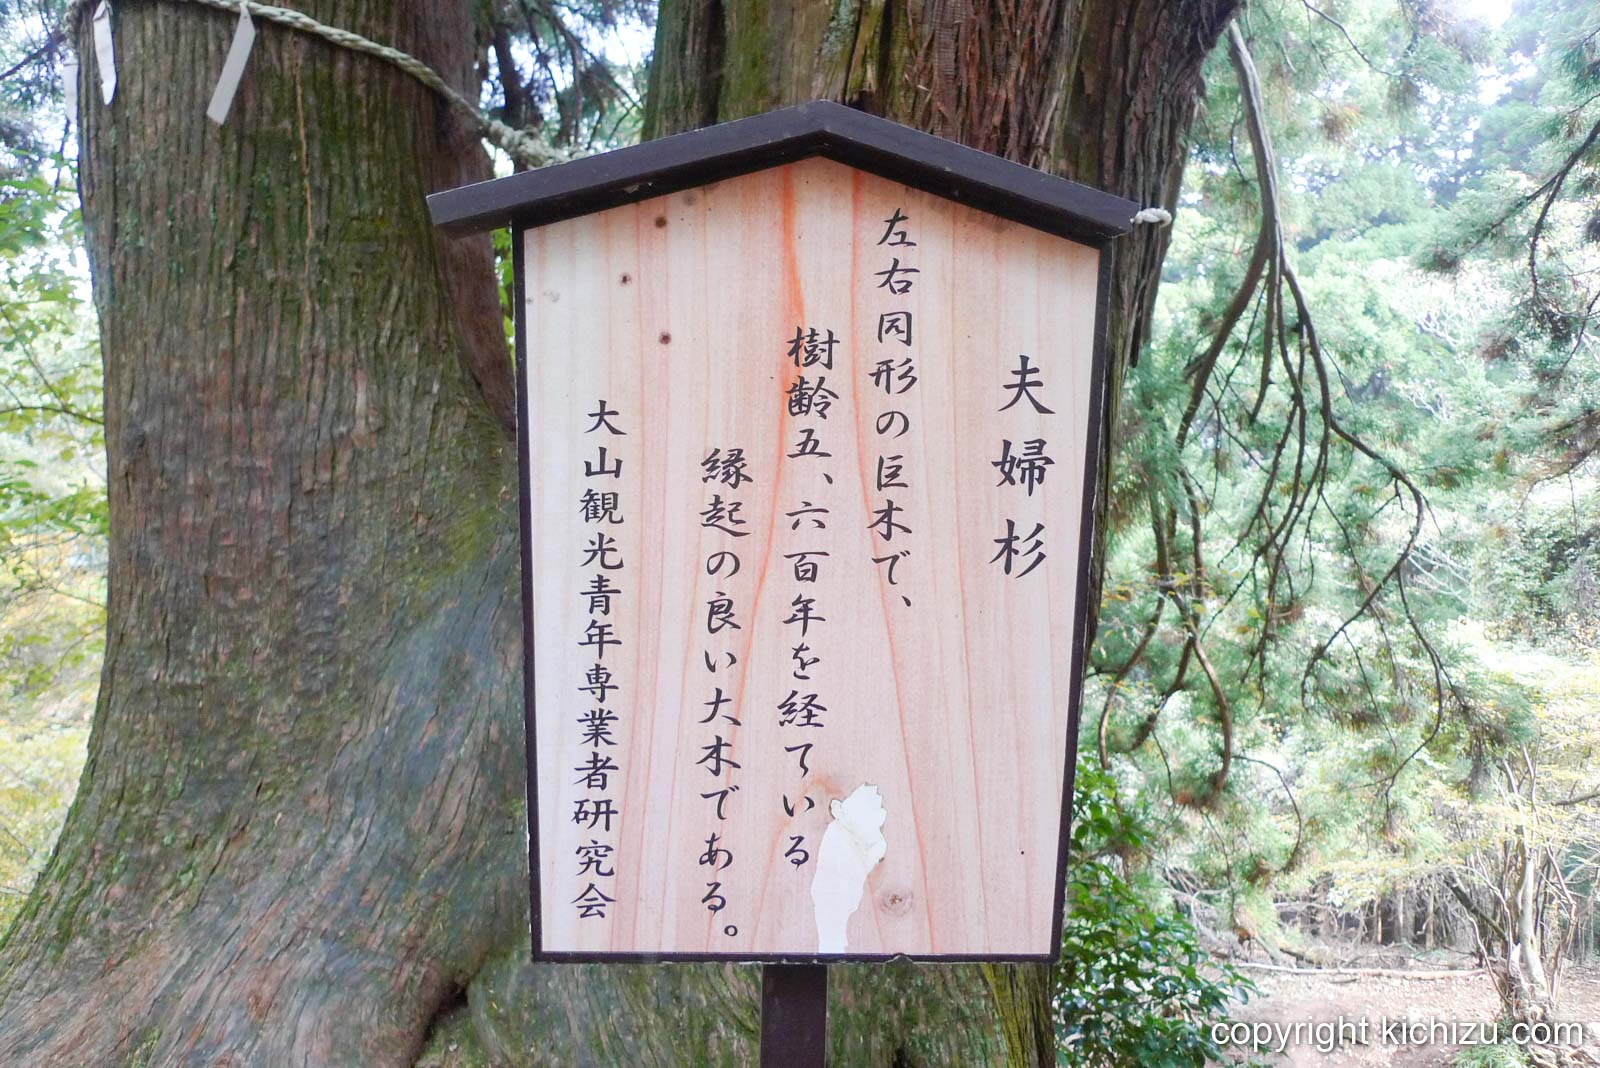 夫婦杉
左右同形の巨木で、
樹齢五、六百年を経ている
縁起の良い大木である。
大山観光青年専業者研究会
copyright kichizu.com